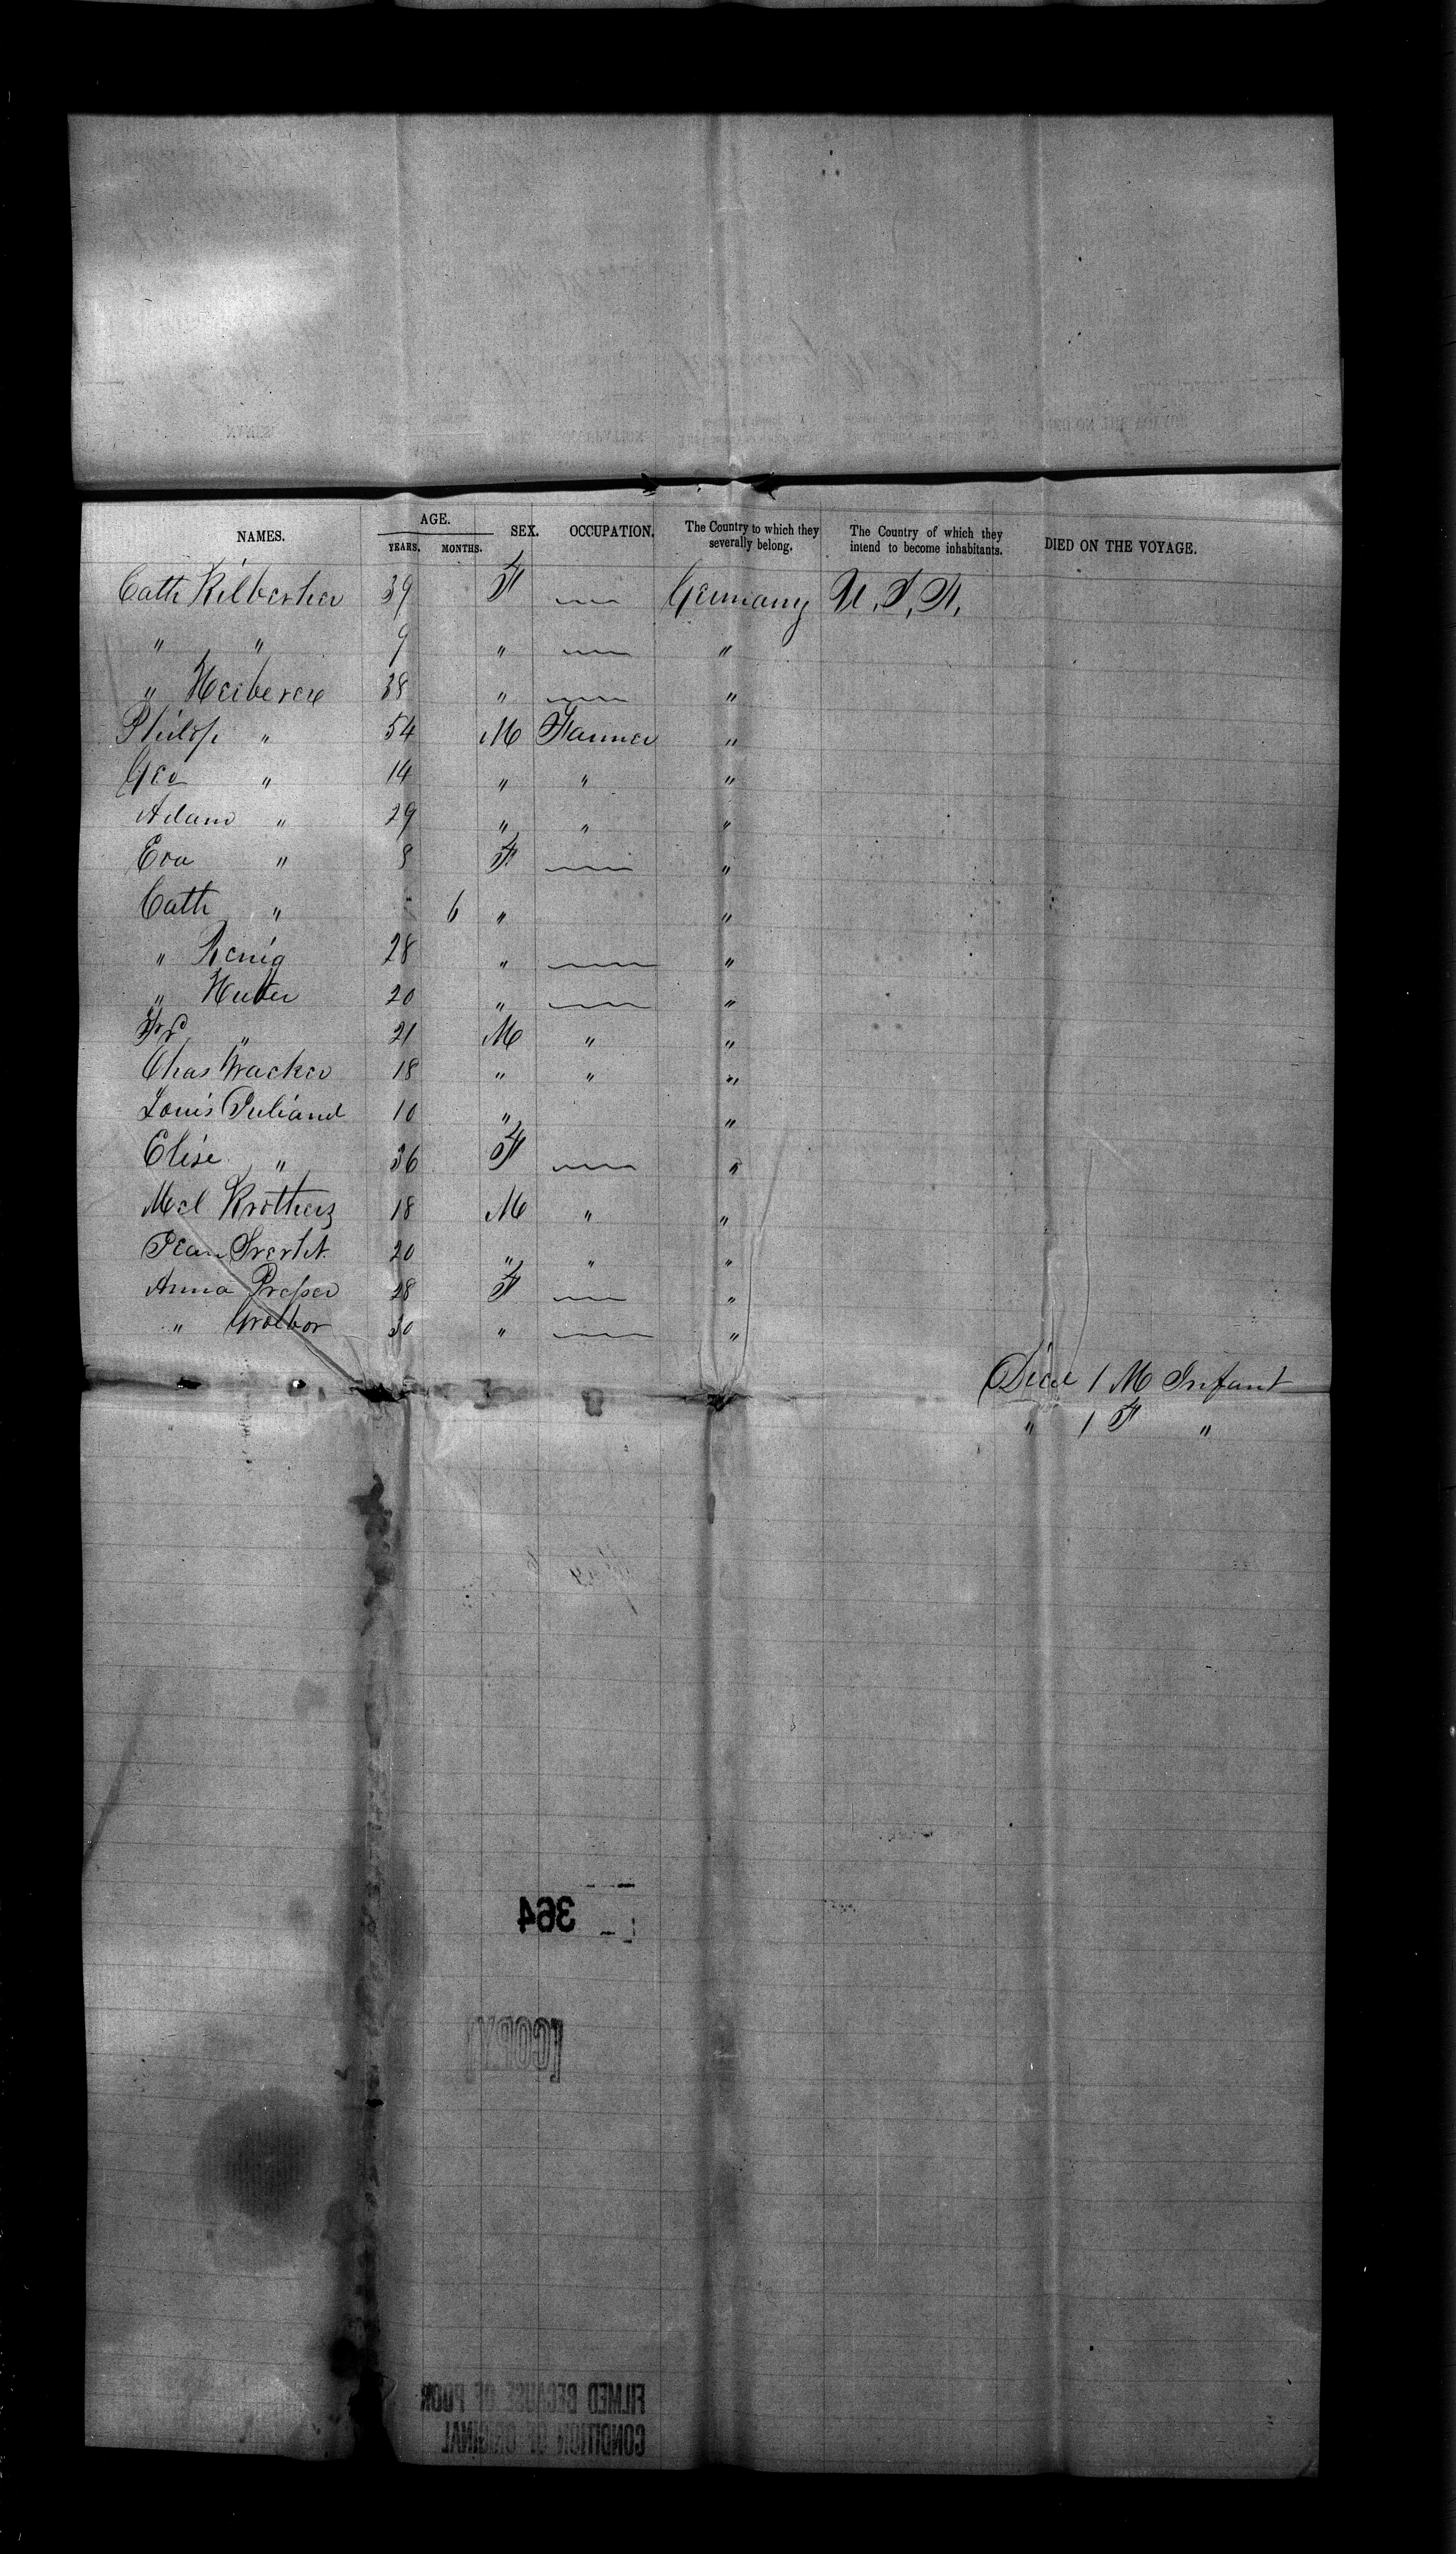 NAMES. AGE. YEARS. MONTHS. SEX. OCCUPATION. The Country to which they severally belong. The Country of which they intend to become inhabitants. DIED ON THE VOYAGE.
Cath 39 F Germany U.S.A.
" " 9 " "
" 38 " "
Philip " 54 M Farmer "
Geo " 14 " " "
Adam " 29 " " "
Eva " 8 F "
Cath " 6 " "
" Kenig 28 " "
" Huber 20 " "
Fr " 21 M " "
Chas Wacker 18 " " "
Louis Juliand 10 " "
Elise " 36 F "
18 M " "
Jean 20 " " "
Anna 28 F "
" 30 " "
Died 1 M Infant
" 1 F "
364
[COPY]
FILMED BECAUSE OF POOR
CONDITION OF ORIGINAL